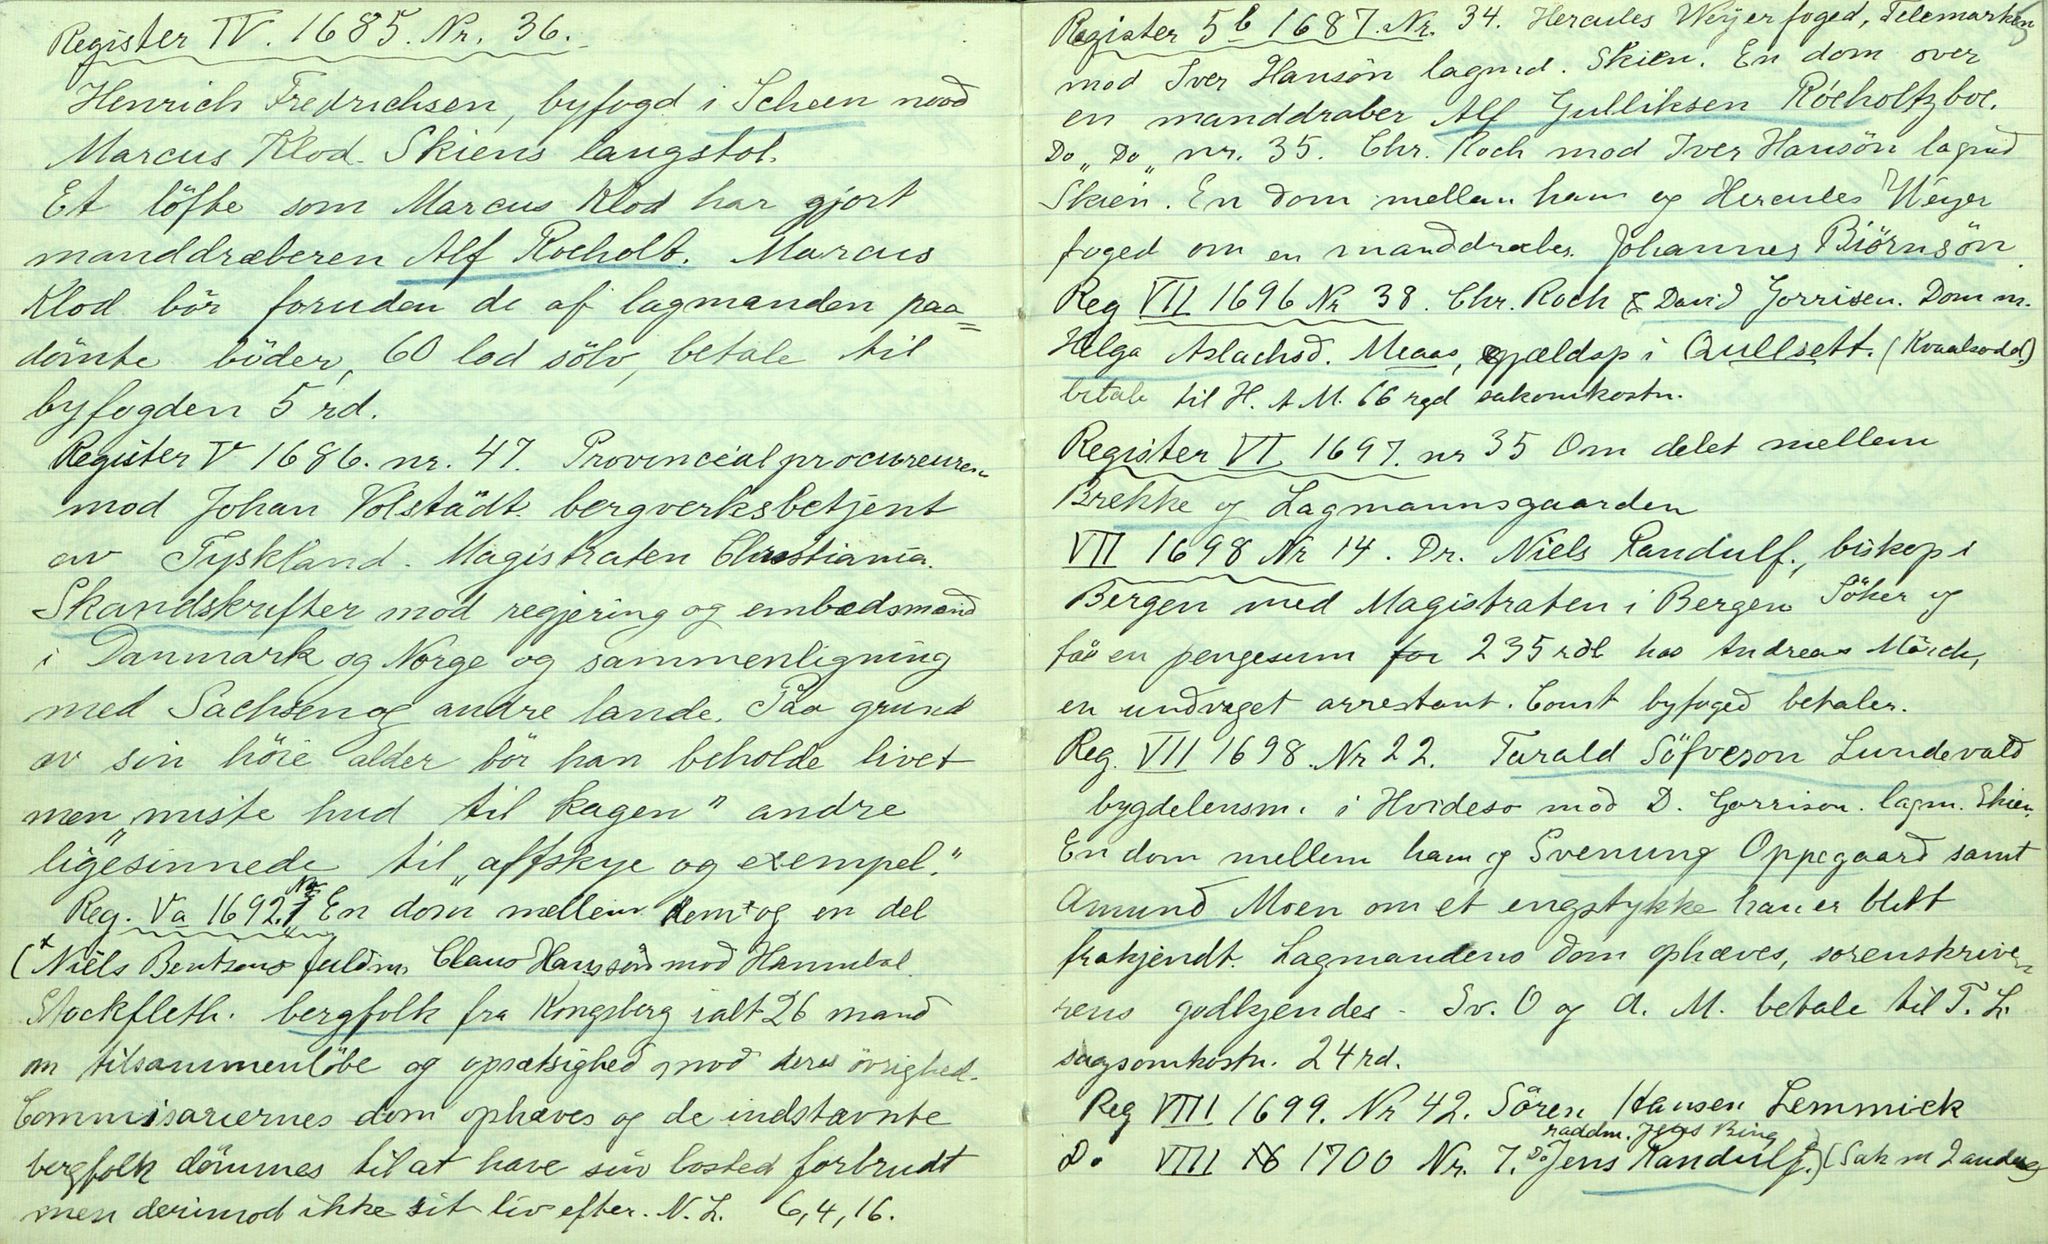 Register IV. 1685. Nr. 36.
Henrich Fredrichsen, byfogd i Scheen mod
Marcus Klod. Skiens laugstol.
Et löfte som Marcus Klod har gjort
manddræberen Alf Roeholt. Marcus
Klod bör foruden de af lagmanden paa=
dömte böder, 60 lod sölv, betale til
byfogden 5 rd.
Register V 1686. nr. 47. Provincial procureuren
mod Johan Volstädt bergverksbetjent
av Tyskland. Magistraten Christiania.
Skandskrifter mod regjering og embedsmænd
i Danmark og Norge og sammenligning
med Sachsen og andre lande. Paa grund
av sin höie alder bör han beholde livet
men "miste hud til kagen" andre
ligesinnede til "affskye og exempel."
Reg. Va 1692. No 1 En dom mellem dem* og en del
(* Niels Bentsens fuldm. Claus Hanssön mod Hannibal
Stockfleth. bergfolk fra Kongsberg ialt 26 mand
om tilsammenlöbe og opsætsighed mod deres övrighed.
Commisariernes dom ophæves og de indstævnte
bergfolk dömmes til at have sin bosted forbrudt
men derimod ikke sit liv efter. N. L. 6, 4, 16.
Register 5 b 1687. Nr. 34. Hercules Weyer foged, Telemarken
mod Iver Hansön lagmd. Skien. En dom over
en manddraber Alf Gulliksen Röeholtzboe.
Do „ Do „ nr. 35. Chr. Koch mod Iver Hansön lagmd
Skien. En dom mellem ham og Hercules Weyer
foged om en manddraber Johannes Biörnsön.
Reg VII 1696 Nr 38. Chr. Koch & David Gorrisen. Dom m.
Helga Aslachsd. Meaas, gjældsp i Qullsett. (Kvaalsodd)
betale til H. A M. 66 rgd sakomkostn.
Register VI 1697. nr 35 Om delet mellem
Brekke og Lagmannsgaarden
VII 1698 Nr 14. Dr. Niels Randulf, biskop i
Bergen med Magistraten i Bergen Söker og
fåe en pengesum for 235 rdl hos Andreas Mörch,
en undveget arrestant. Const byfoged betaler.
Reg. VII 1698. Nr 22. Tarald Söfveson Lundevald
bygdelensm. i Hvideso mod D. Gorrison. lagm. Skien.
En dom mellem ham og Svenung Oppegaard samt
Amund Moen om et engstykke han er blitt
frakjendt. Lagmandens dom ophæves, sorenskrive
rens godkjendes - Sv. O og A. M. betale til T. L.
sagsomkostn. 24 rd.
Reg VIII 1699. Nr 42. Sören Hansen Lemmick
raddm. Jens Bing
Do VIII 1700 Nr. 7. Do Jens Randulf.) (Sak m 2 andre